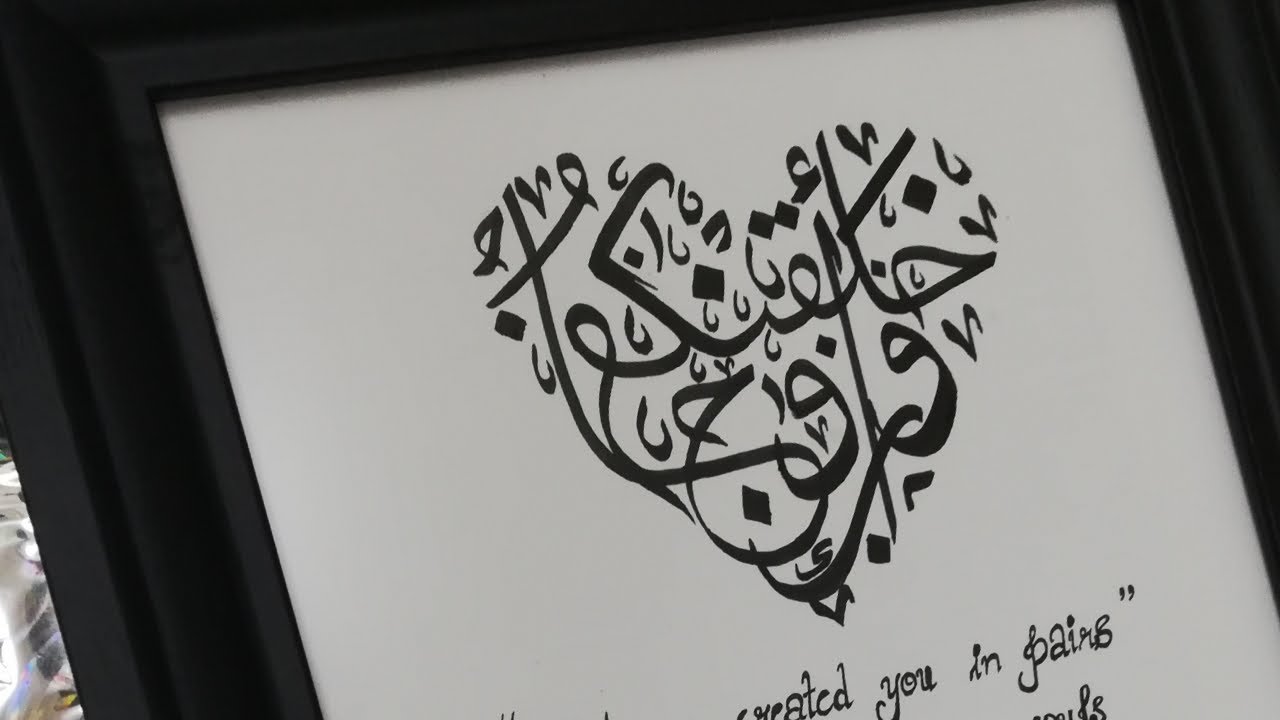 وَخَلَقْنَٰكُمْ أَزْوَٰجًا
created you in pairs”